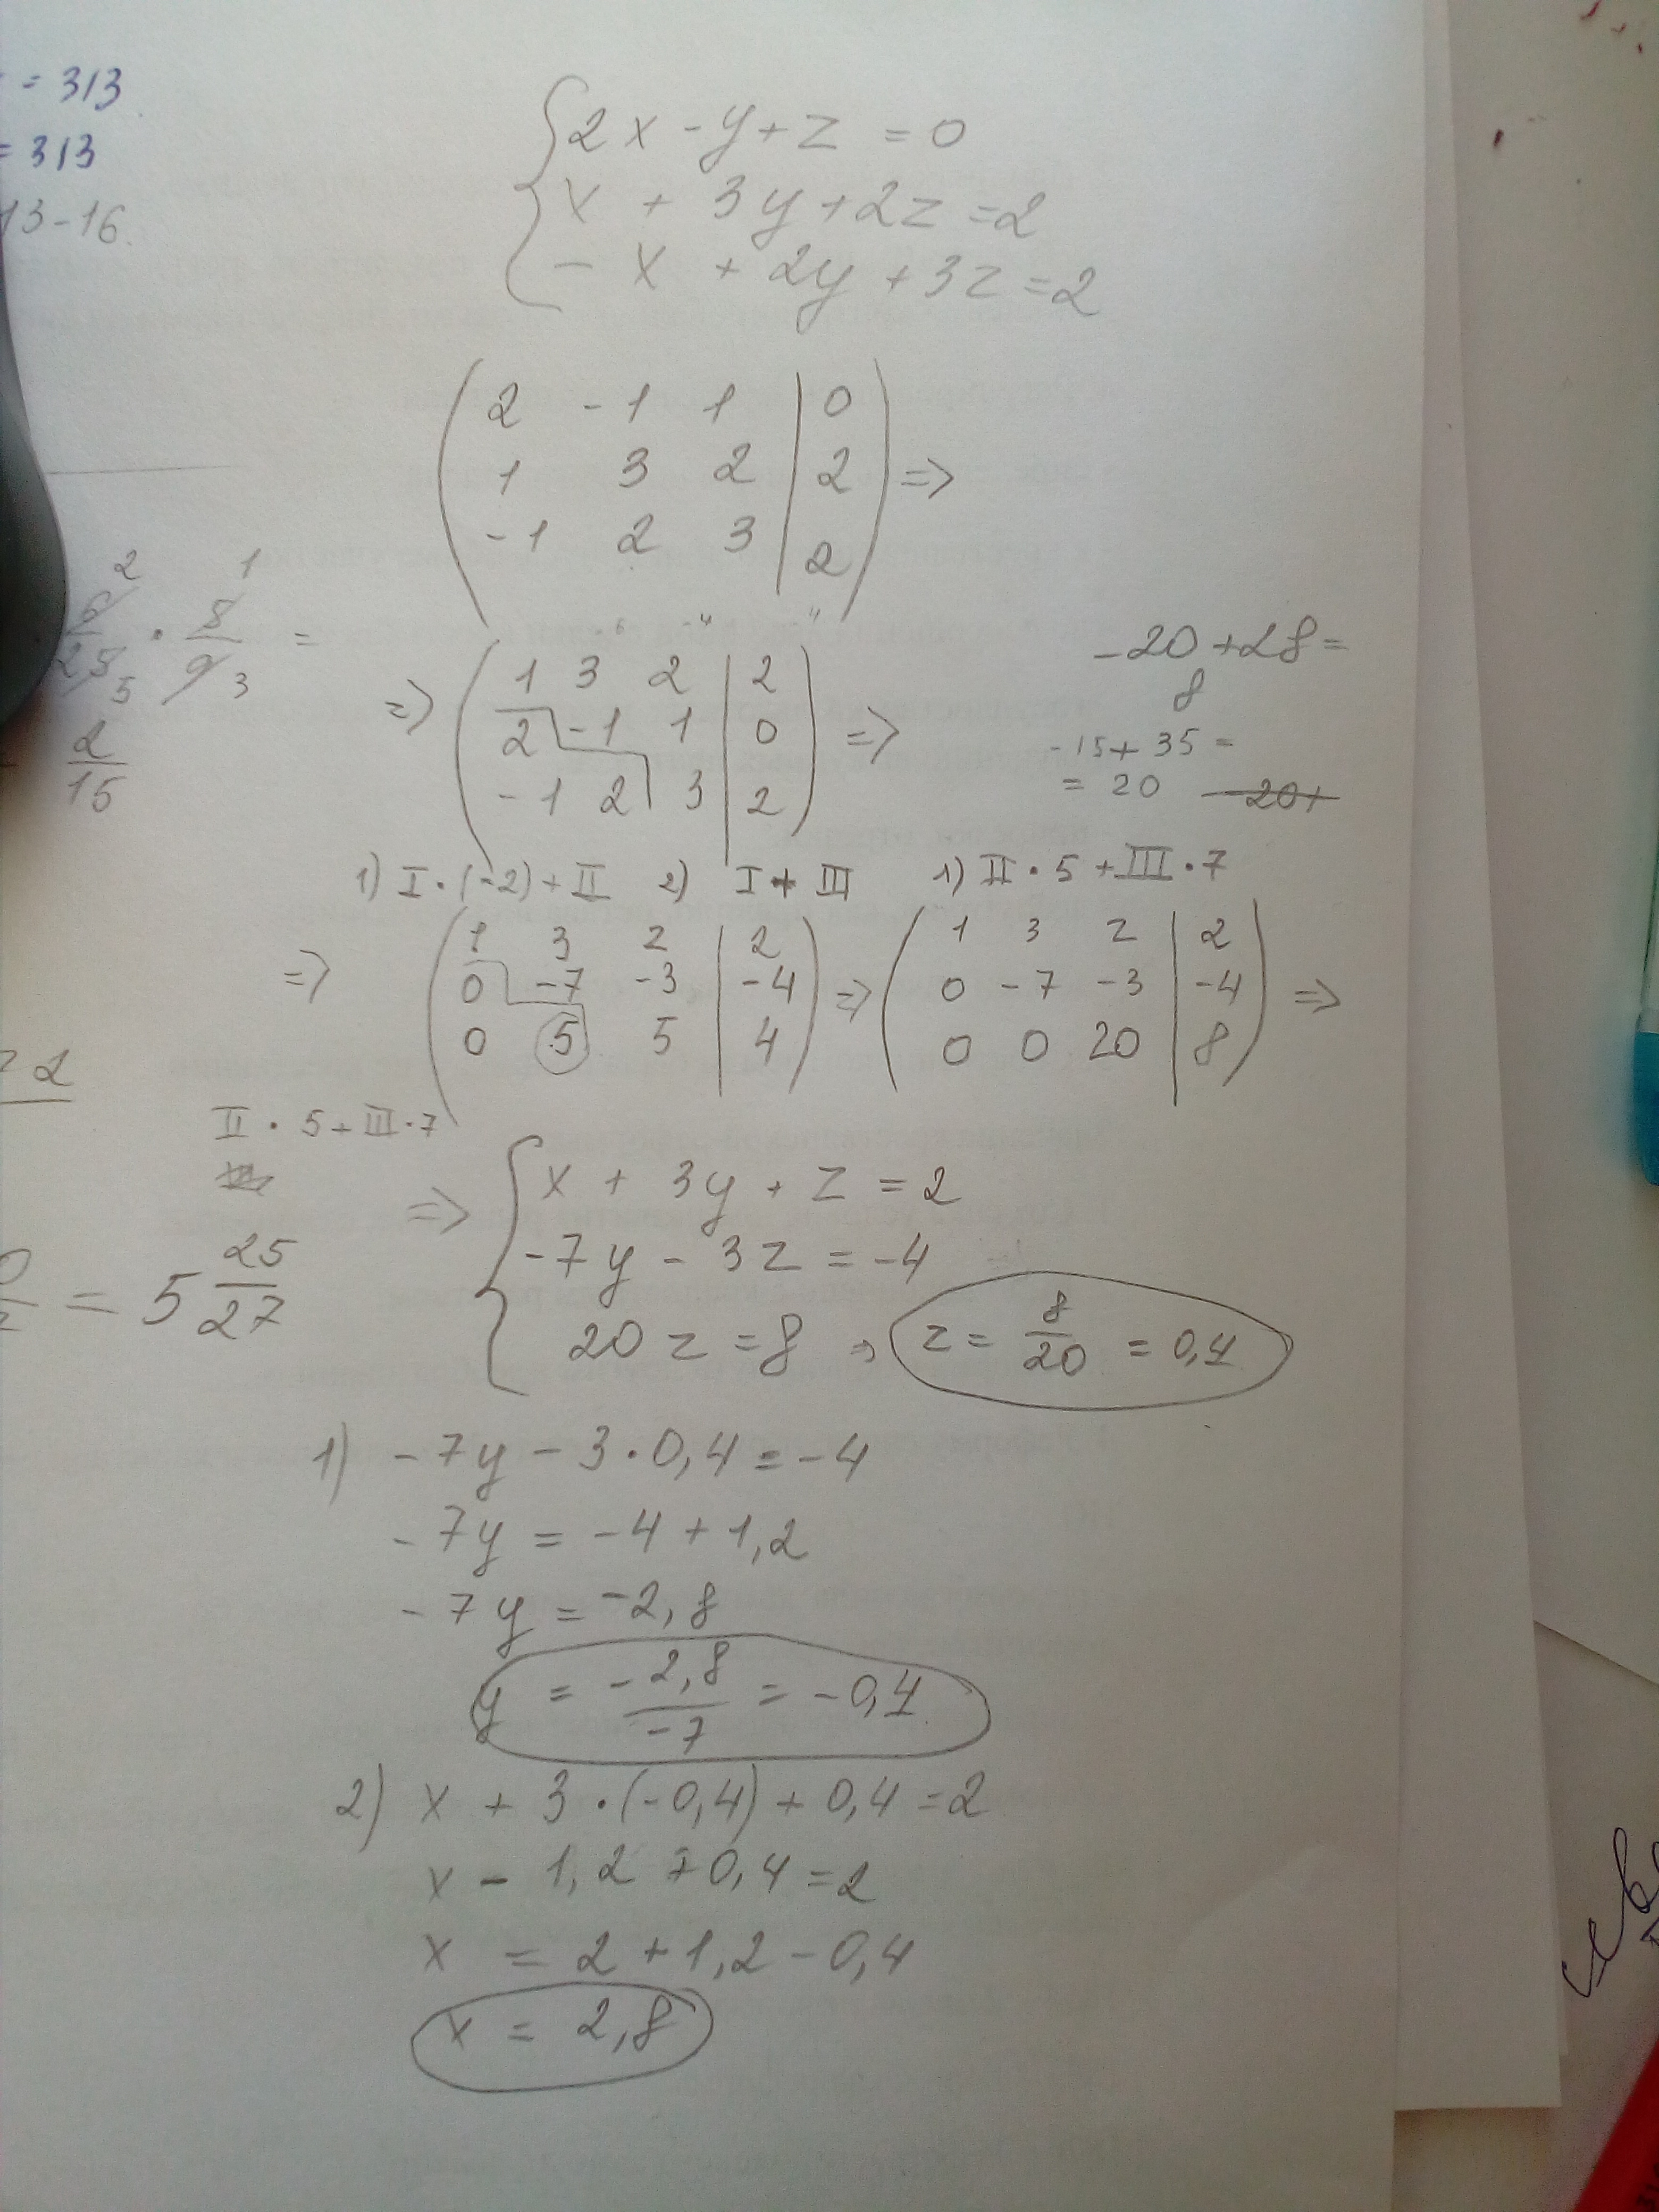 = 313
= 313
13-16.
{ 2x - y + z = 0
x + 3y + 2z = 2
- x + 2y + 3z = 2
( 2 -1 1 | 0
1 3 2 | 2
-1 2 3 | 2 ) =>
6 2 / 25 5 · 5 1 / 9 3 =
2/15
=> ( 1 3 2 | 2
2 -1 1 | 0
-1 2 3 | 2 ) =>
-20 + 28 =
8
-15 + 35 =
= 20 -20+
1) I · (-2) + II 2) I + III 1) II · 5 + III · 7
=> ( 1 3 2 | 2
0 -7 -3 | -4
0 5 5 | 4 ) => ( 1 3 2 | 2
0 -7 -3 | -4
0 0 20 | 8 ) =>
II · 5 + III · 7
=> { x + 3y + z = 2
-7y - 3z = -4
20z = 8 => z = 8/20 = 0,4
= 5 25/27
1) -7y - 3 · 0,4 = -4
-7y = -4 + 1,2
-7y = -2,8
y = -2,8/-7 = -0,4
2) x + 3 · (-0,4) + 0,4 = 2
x - 1,2 + 0,4 = 2
x = 2 + 1,2 - 0,4
x = 2,8